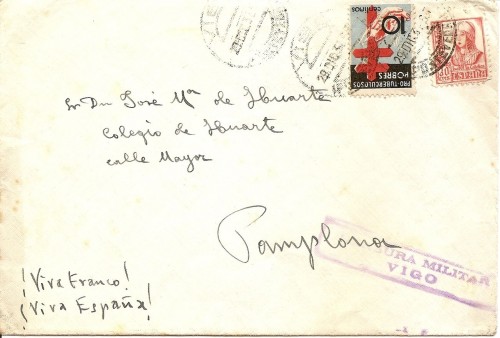 10
centimos
PRO-TUBERCULOSOS
POBRES
ESPAÑA
Sr. Dn José Mª de Huarte
Colegio de Huarte
calle Mayor
Pamplona
URA MILITAR
VIGO
¡Viva Franco!
¡Viva España!